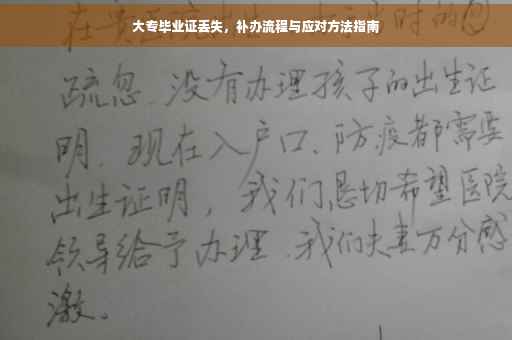 大专毕业证丢失，补办流程与应对方法指南
疏忽、没有办理孩子的出生证
明、现在入户口、防疫都需要
出生证明，我们恳切希望医院
领导给予办理、我们夫妻万分感
激。